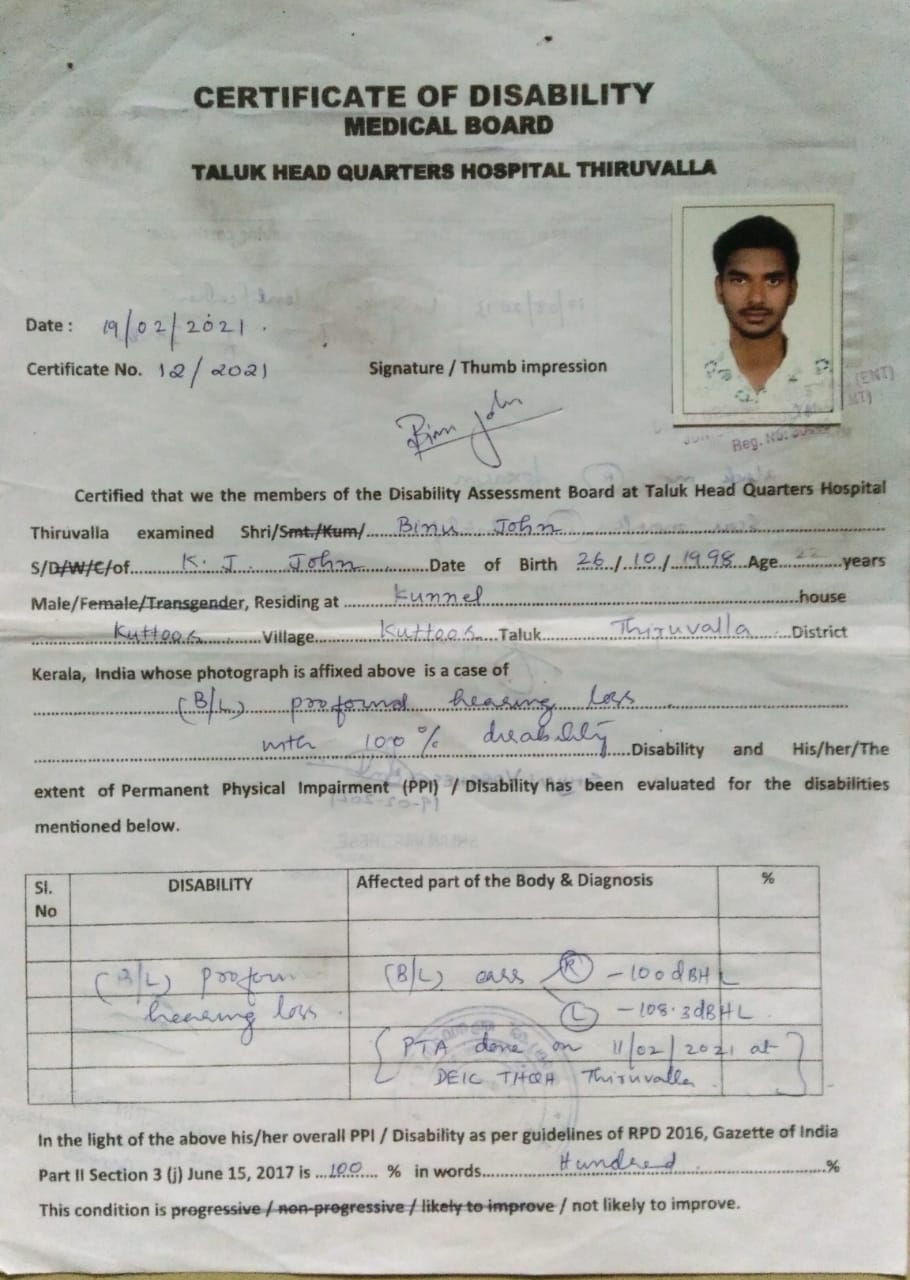 CERTIFICATE OF DISABILITY
MEDICAL BOARD
TALUK HEAD QUARTERS HOSPITAL THIRUVALLA
Date : 19/02/2021.
Certificate No. 12/2021
Signature / Thumb impression
(ENT)
Reg. No.
Binu John
Certified that we the members of the Disability Assessment Board at Taluk Head Quarters Hospital
Thiruvalla examined Shri/Smt./Kum/.....Binu John.....
S/D/W/C/of.....K. J. John.....Date of Birth 26/.10/.1998...Age....22....years
Male/Female/Transgender, Residing at .....Kunnel.....house
.....Kuttoor.....Village.....Kuttoor....Taluk.....Thiruvalla.....District
Kerala, India whose photograph is affixed above is a case of
.....(B/L) profound hearing loss.....
.....with 100% disability.....Disability and His/her/The
extent of Permanent Physical Impairment (PPI) / Disability has been evaluated for the disabilities
mentioned below.
Sl. No DISABILITY Affected part of the Body & Diagnosis %
(B/L) profoun (B/L) ears R -100dBHL
hearing loss. L -108.3dBHL
{PTA done on 11/02/2021 at
DEIC THQH Thiruvalla.}
In the light of the above his/her overall PPI / Disability as per guidelines of RPD 2016, Gazette of India
Part II Section 3 (j) June 15, 2017 is ...100.... % in words.....Hundred.....%
This condition is progressive / non-progressive / likely to improve / not likely to improve.